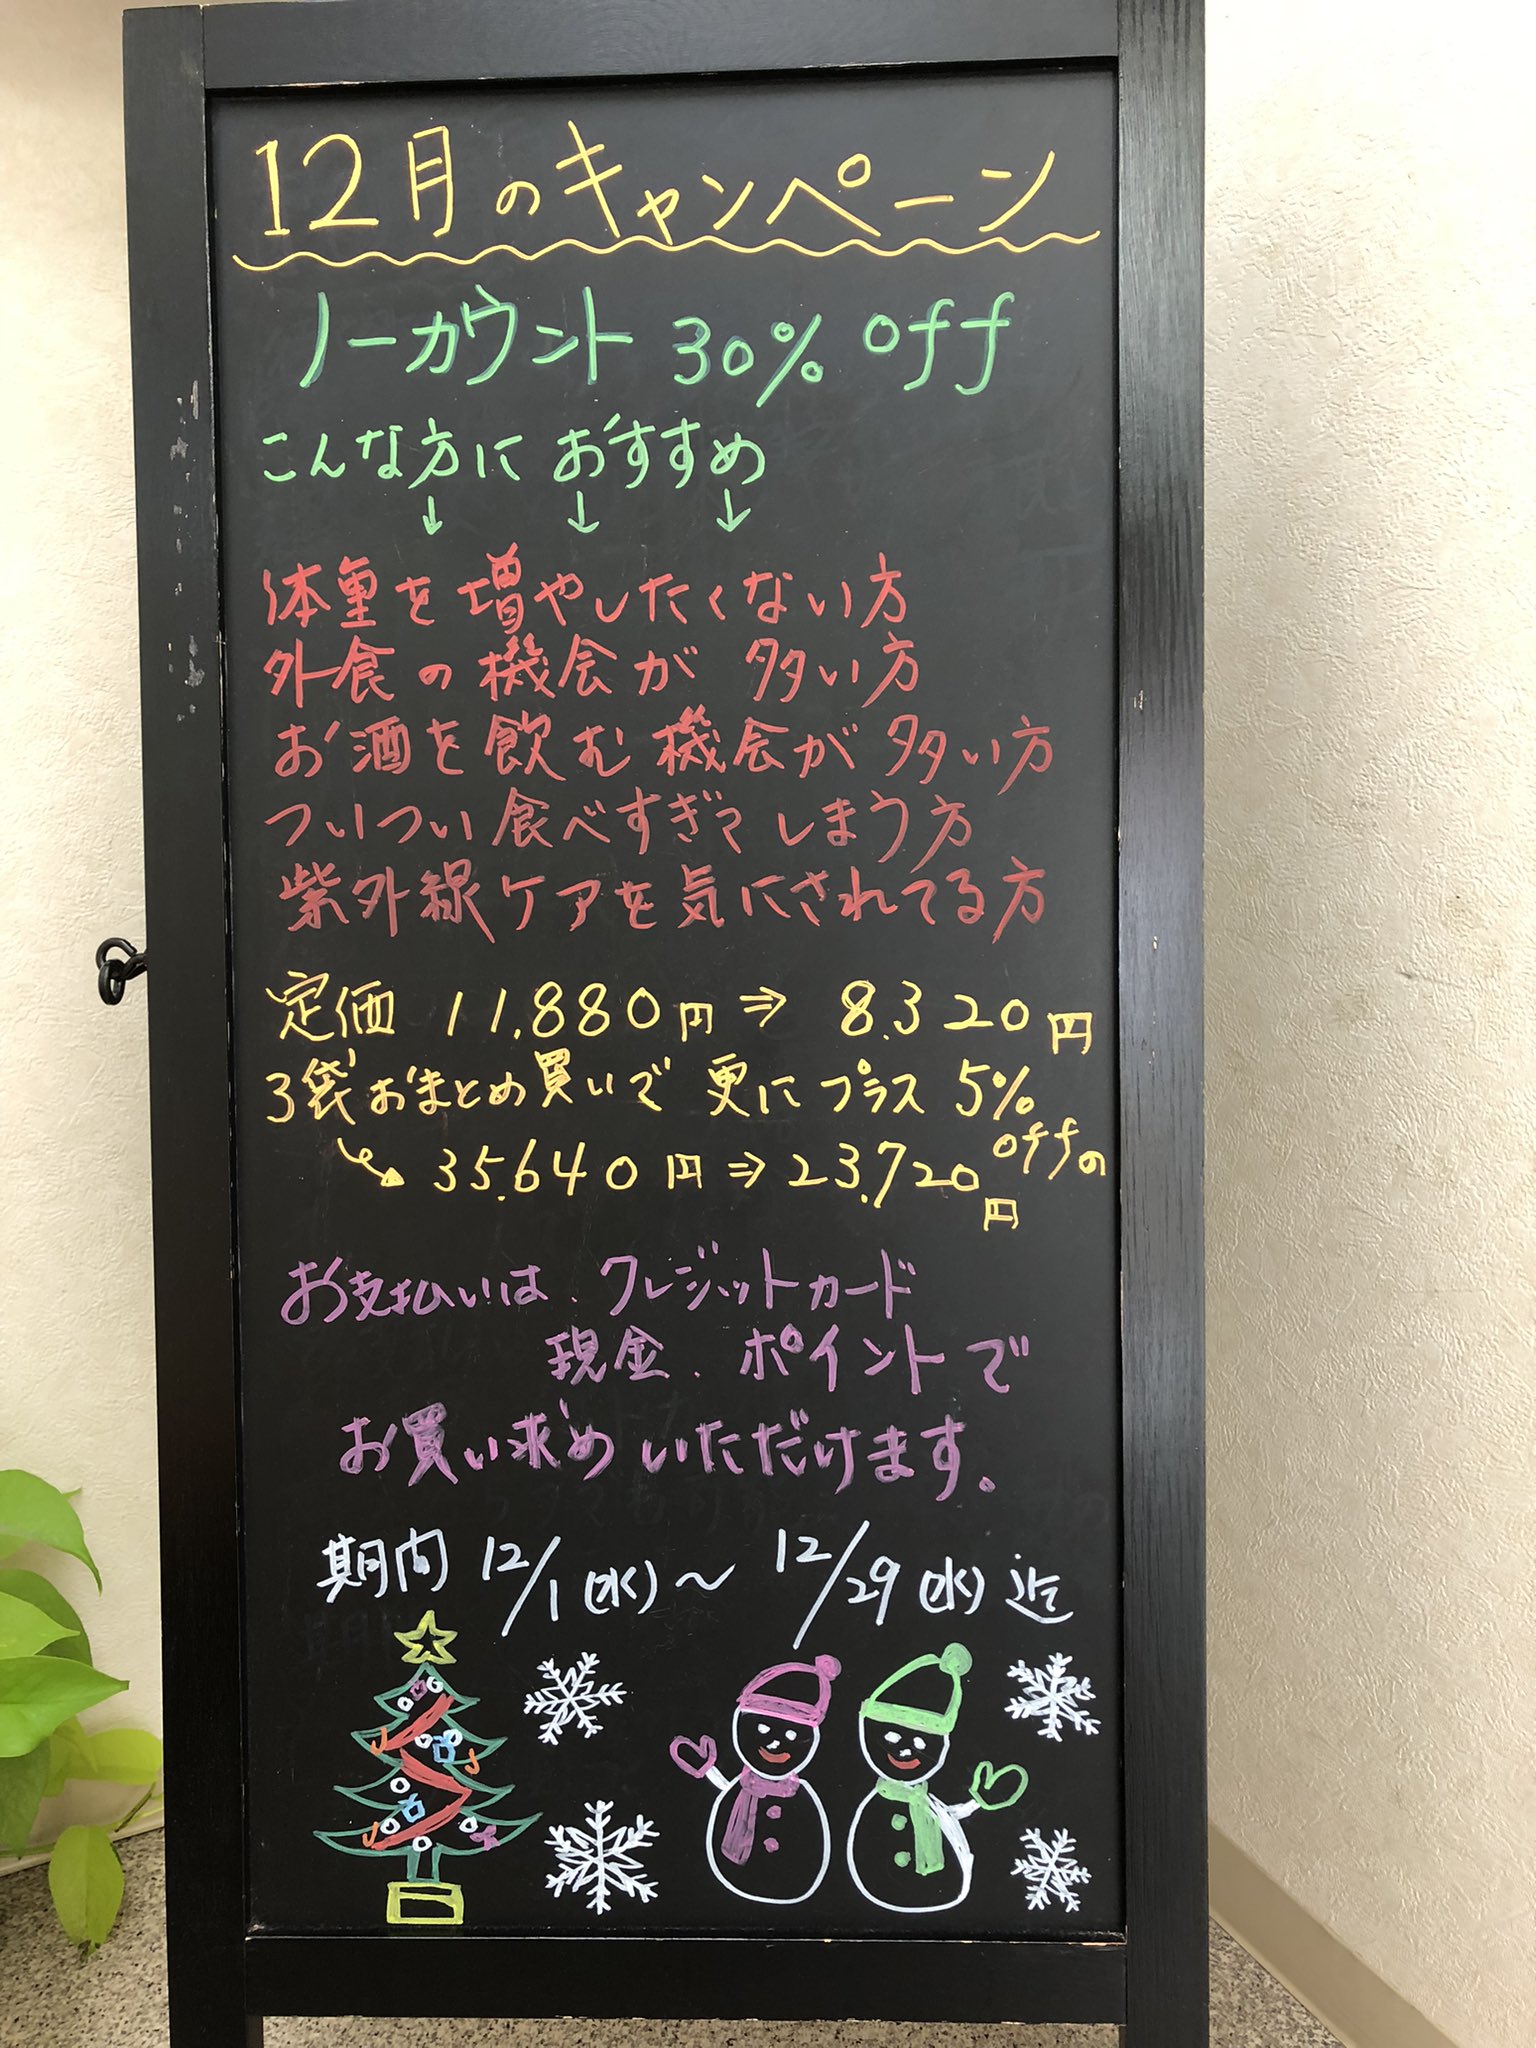 12月のキャンペーン
ノーカウント 30% off
こんな方に おすすめ
↓ ↓ ↓
体重を増やしたくない方
外食の機会が 多い方
お酒を飲む機会が多い方
ついつい食べすぎてしまう方
紫外線ケアを気にされてる方
定価 11,880円 ⇒ 8.320円
3袋おまとめ買いで 更にプラス 5% offの
35.640円 ⇒ 23.720円
お支払いは、クレジットカード
現金、ポイントで
お買い求めいただけます。
期間 12/1(水)〜 12/29(水)迄